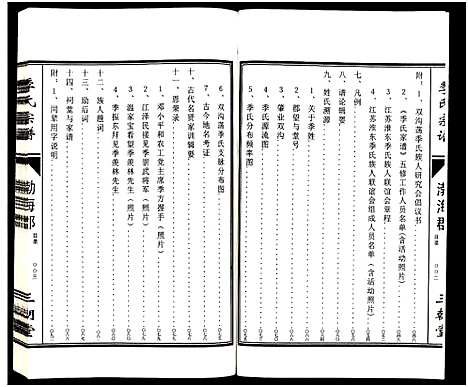 季氏宗譜
渤海郡
目录
〇〇二
三朝堂
附：1、双沟荡季氏族人研究会倡议书
2、《季氏家谱》五修工作人员名单（含活动照片）
3、江苏淮东季氏族人联谊会章程
4、江苏淮东季氏族人联谊会组成人员名单（含活动照片）
七、凡例
八、谱论辑要
九、姓氏源流
1、关于季姓
2、郡望与堂号
3、肇业双沟
4、季氏源流图
5、季氏分布频率图
6、双沟荡季氏支脉分布图
7、古今地名考证
十、古代名贤家训辑要
十一、恩荣录
1、邓小平和农工党主席季方握手（照片）
2、江泽民接见季崇武将军（照片）
3、温家宝看望季羡林先生（照片）
4、季振东拜见季羡林先生（照片）
十二、族人题词
十三、励后词
十四、祠堂与家谱
附：1、同辈用字说明
季氏宗譜
渤海郡
目录
〇〇三
三朝堂